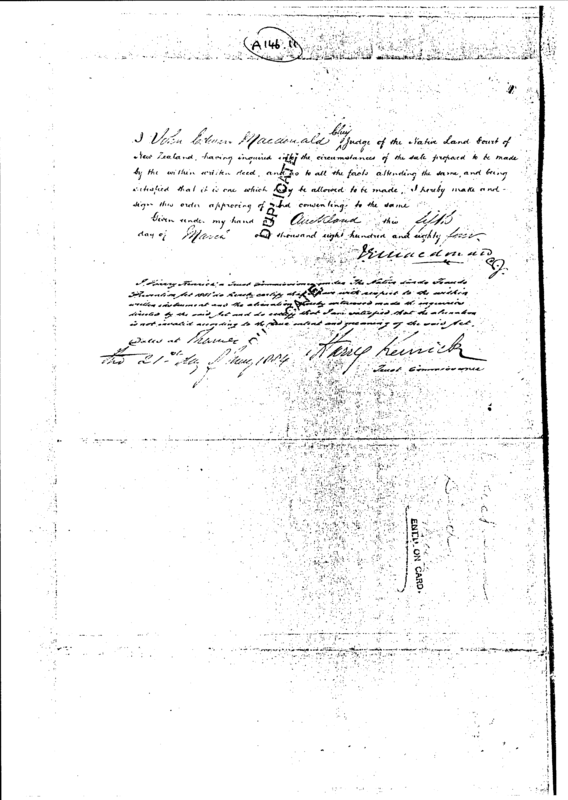 A146.11
I John Edwin Macdonald Chief Judge of the Native Land Court of
New Zealand, having inquired into the circumstances of the sale proposed to be made
by the within written deed, and as to all the facts attending the same, and being
satisfied that it is one which may be allowed to be made, I hereby made and
sign this order approving of and consenting to the same
Given under my hand Auckland this fifth
day of March one thousand eight hundred and eighty four.
JEMacdonald
CJ
DUPLICATE
I Harry Kenrick a Trust Commissioner under The Native Lands Frauds
Prevention Act 1881 do hereby certify that I have with respect to the within
written instrument and the alienation thereby witnessed made the inquiries
directed by the said Act and do certify that I am satisfied that the alienation
is not invalid according to the true intent and meaning of the said Act.
Dated at Thames
this 21st day of 1884
Harry Kenrick
Trust Commissioner
DUPLICATE
ENTD. ON CARD.